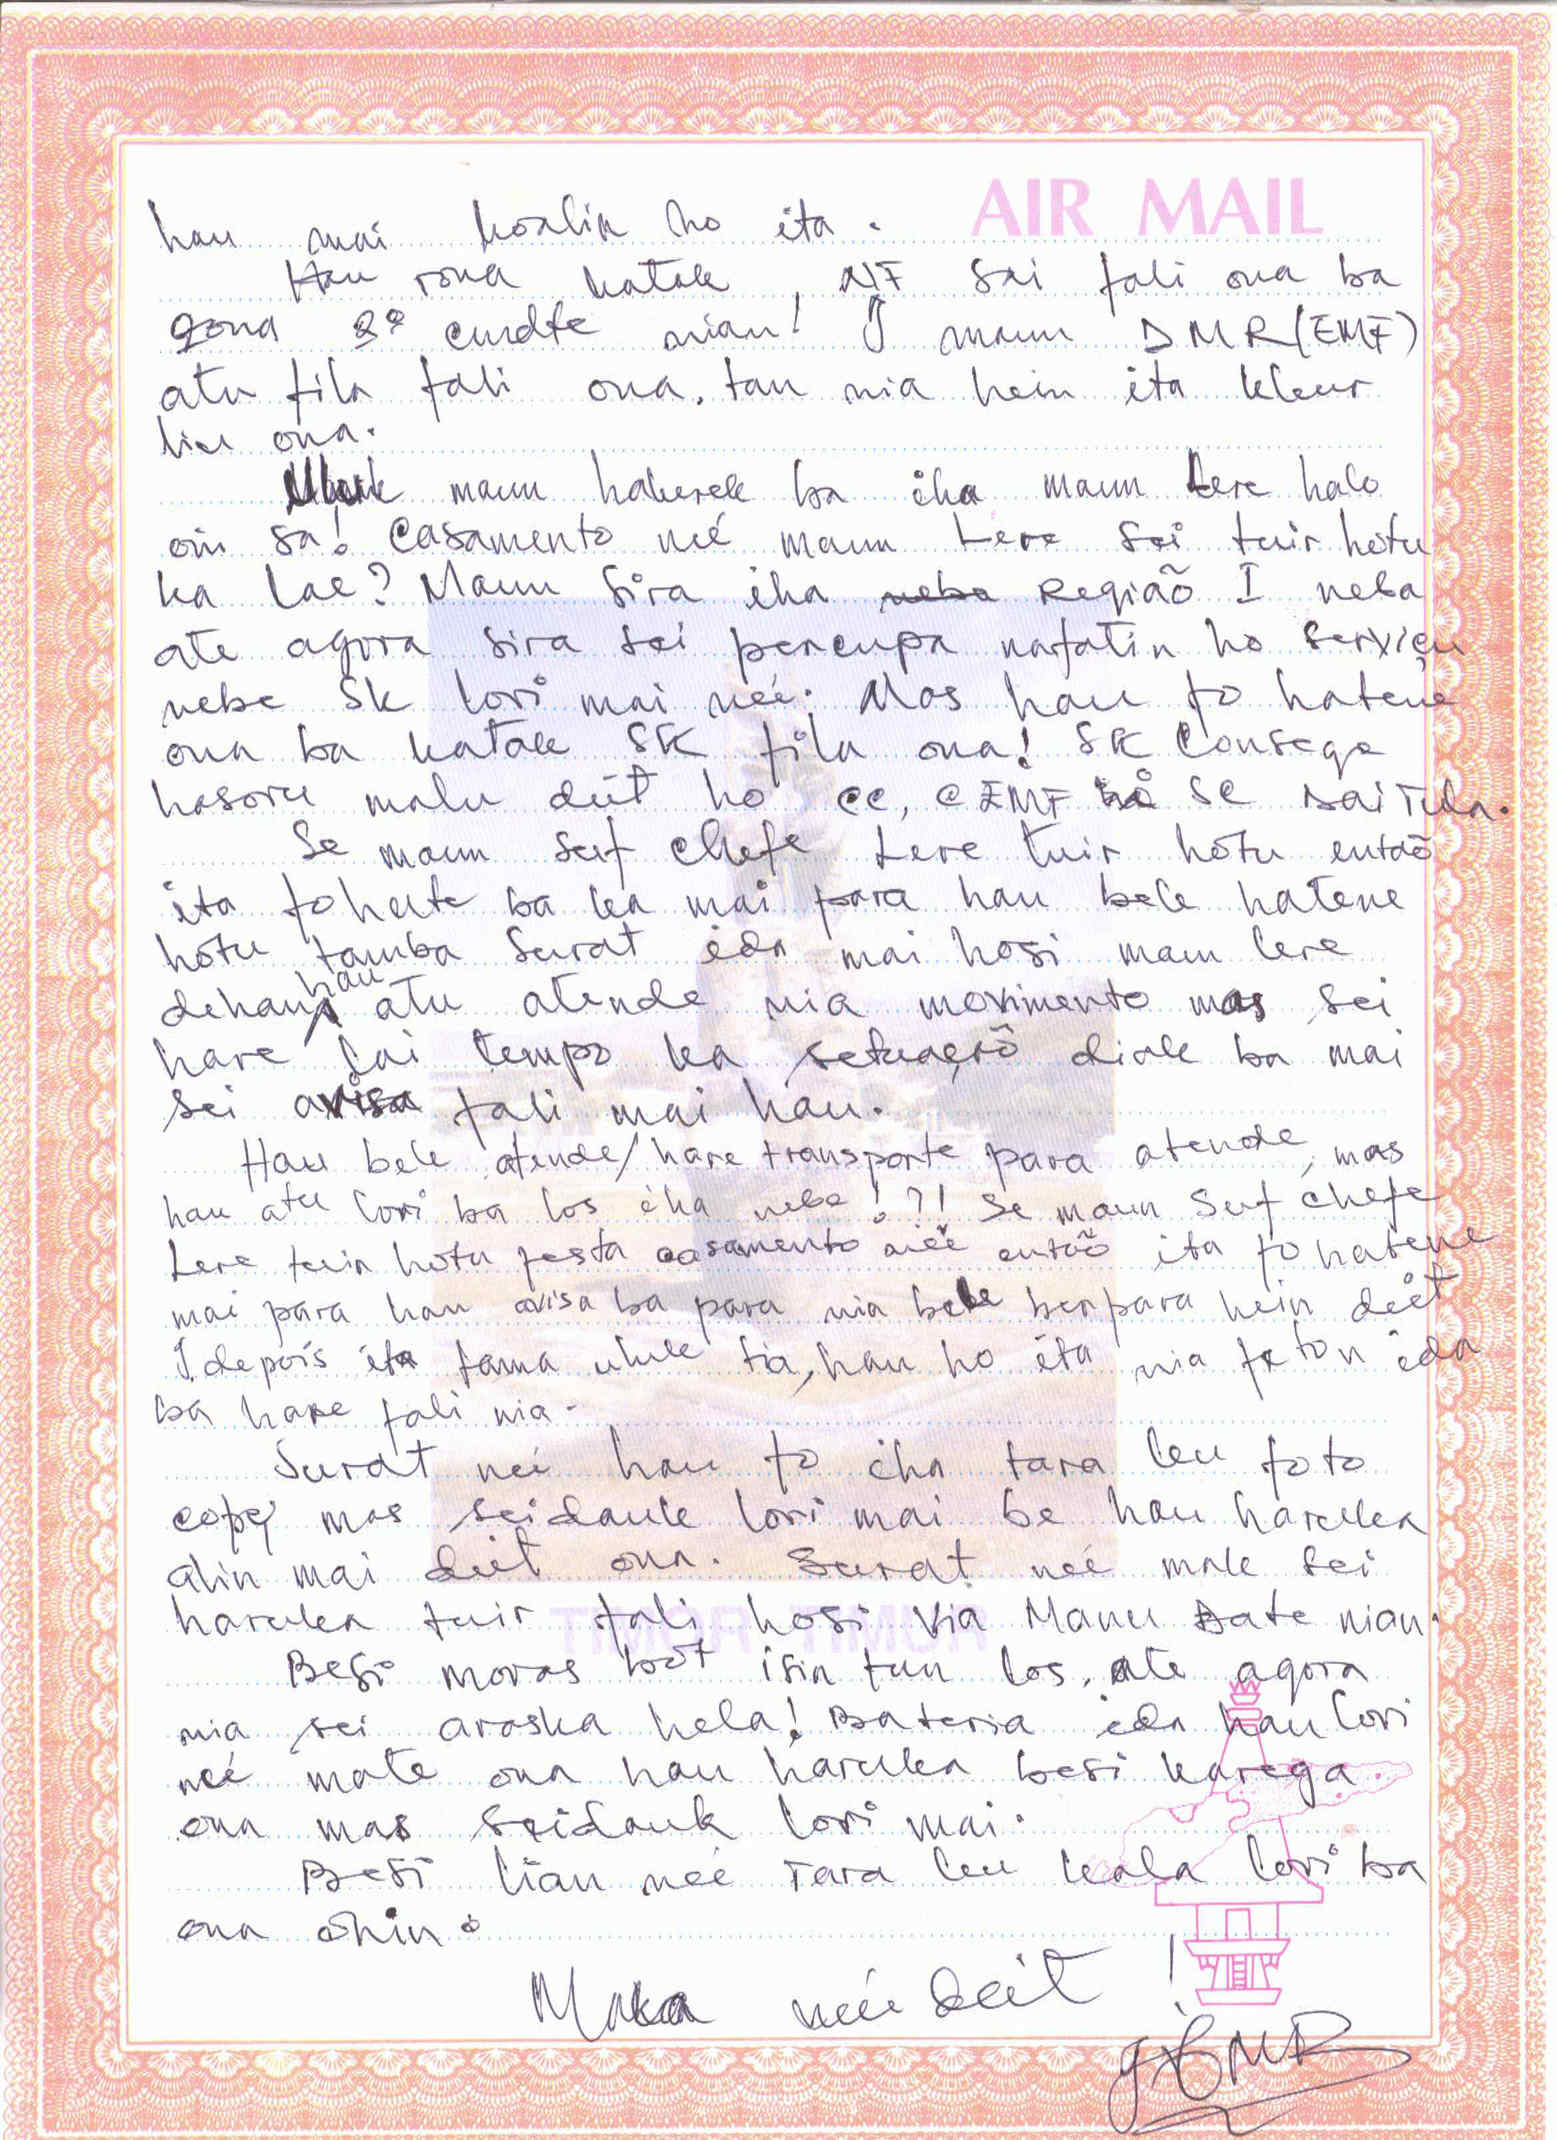 AIR MAIL
hau mai koalia ho ita.
Hau rona katak, NF sai fali ona ba
zona 2º nian! I maun DMR (EMF)
atu fila fali ona. tan nia hein ita kleur
liu ona.
maun hakerek ba iha maun Lere halo
oin sa! Casamento neé maun Lere sei tuir hotu
ka lae? Maun sira iha Região I neba
ate agora sira sei pencupa nafatin ho serviçu
nebe SK lori mai neé. Mas hau fo hatene
ona ba katak SK fila ona! SK Consege
hasoru malu deit ho CC, CEMF ho SC Dai Tula.
Se maun Suf chefe Lere tuir hotu entaõ
ita fo hate ba ka mai para hau bele hatene
hotu tamba Surat ida mai hosi maun Lere
dehan hau atu atende nia movimento mas sei
hare lai tempo ka setuaçaõ diak ba mai
sei avisa fali mai hau.
Hau bele atende/hare transporte para atende, mas
hau atu lori ba los iha nebe!?! Se maun Suf Chefe
Lere tuir hotu festa casamento neé entaõ ita fo hatene
mai para hau avisa ba para nia bele hein deit
I depois ita tama uluk tia, hau ho ita nia feton ida
ba hare fali nia.
Surat neé hau fo iha Tara leu foto
copy mas seidauk lori mai be hau haruka
alin mai deit ona. Surat neé mak sei
haruka tuir fali hosi via Manu Date nian.
Besi moras boot isin tun los, ate agora
nia sei araska hela! Bateria ida hau lori
neé mate ona hau haruka besi karega
ona mas seidauk lori mai.
Besi lian neé Tara leu kala lori ba
ona ohin.
Maka neé deit!
TIMOR TIMUR